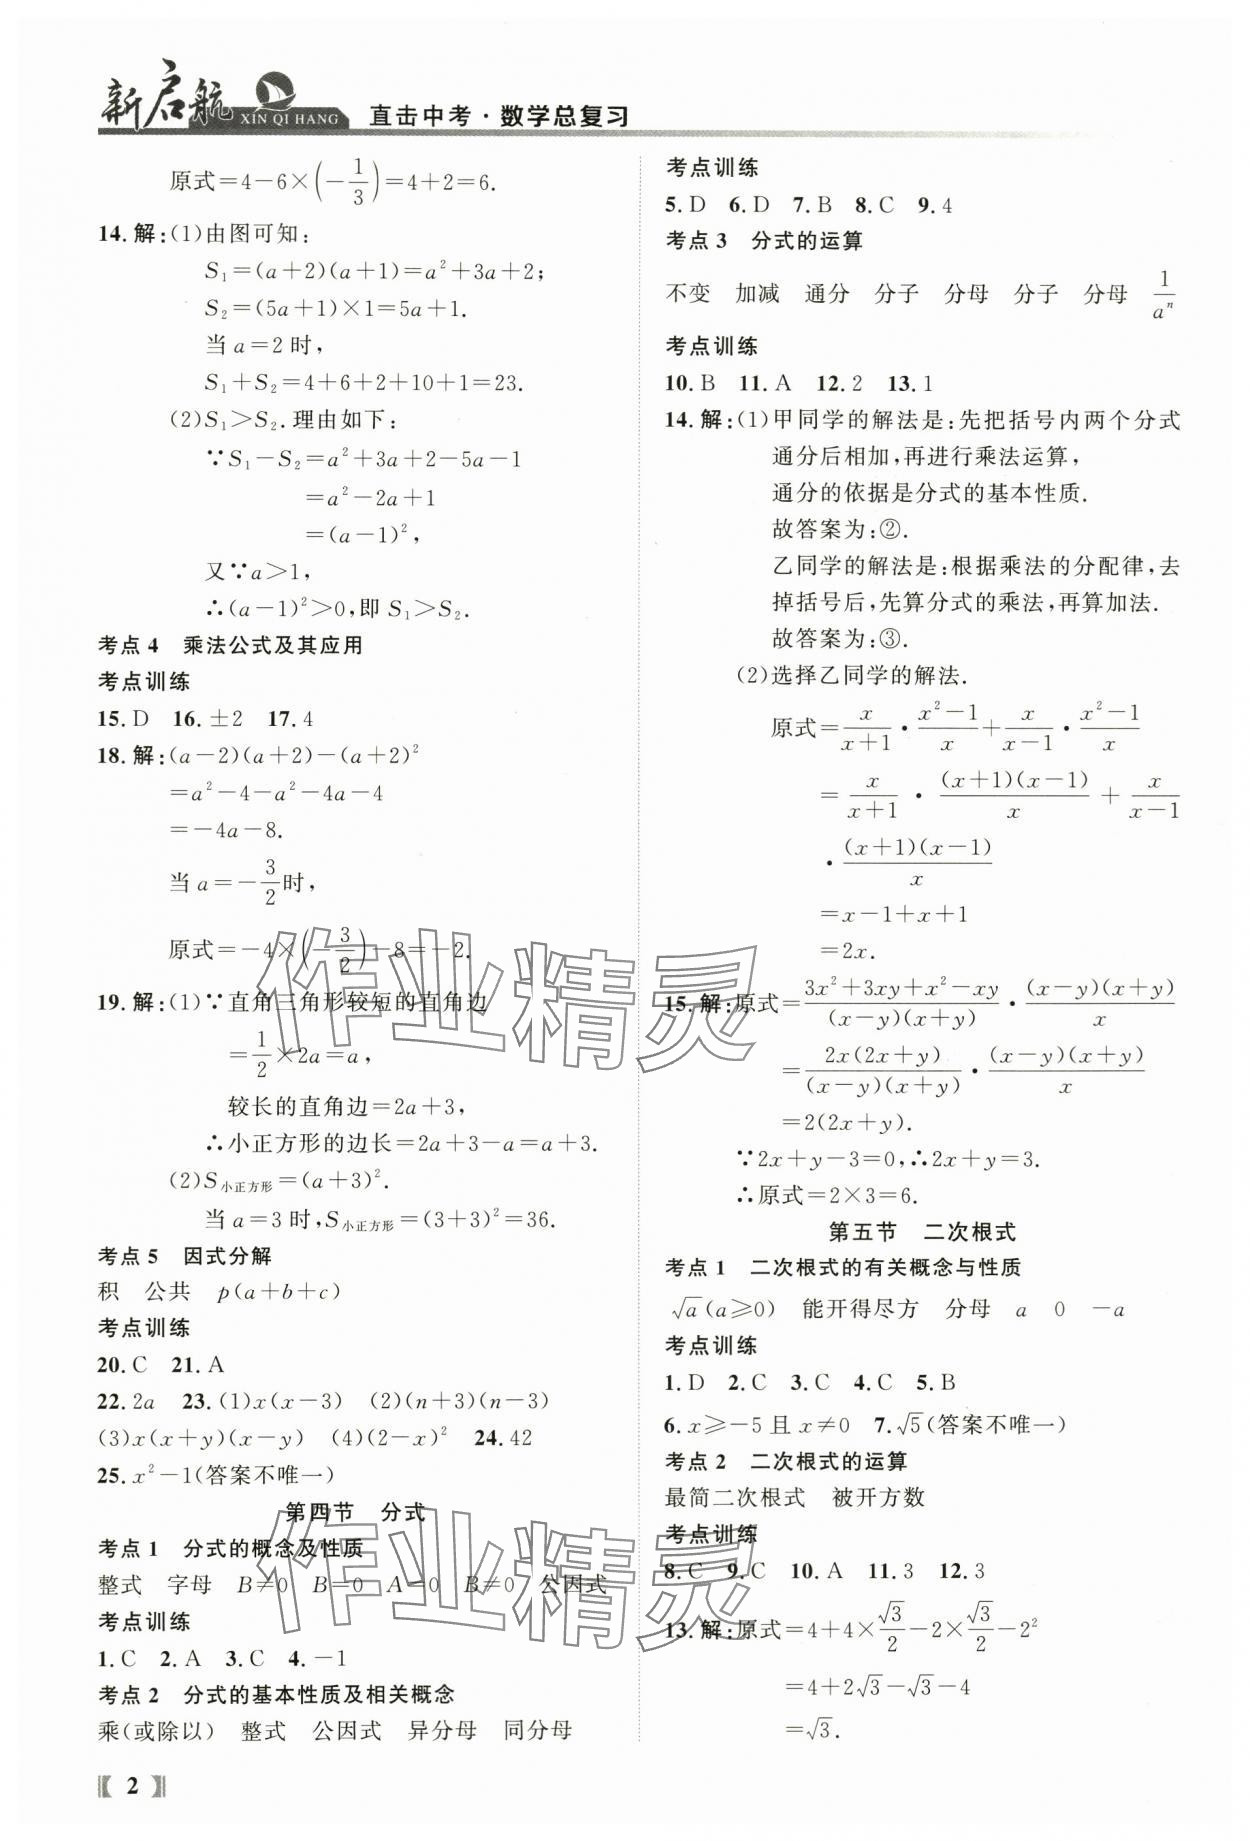 新启航
XIN QI HANG
直击中考·数学总复习
原式=4-6×(-1/3)=4+2=6.
14.解:(1)由图可知:
S₁=(a+2)(a+1)=a²+3a+2;
S₂=(5a+1)×1=5a+1.
当a=2时,
S₁+S₂=4+6+2+10+1=23.
(2)S₁>S₂.理由如下:
∵S₁-S₂=a²+3a+2-5a-1
=a²-2a+1
=(a-1)²,
又∵a>1,
∴(a-1)²>0,即S₁>S₂.
考点4 乘法公式及其应用
考点训练
15.D 16.±2 17.4
18.解:(a-2)(a+2)-(a+2)²
=a²-4-a²-4a-4
=-4a-8.
当a=-3/2时,
原式=-4×(-3/2)-8=-2.
19.解:(1)∵直角三角形较短的直角边
=1/2×2a=a,
较长的直角边=2a+3,
∴小正方形的边长=2a+3-a=a+3.
(2)S小正方形=(a+3)².
当a=3时,S小正方形=(3+3)²=36.
考点5 因式分解
积 公共 p(a+b+c)
考点训练
20.C 21.A
22.2a 23.(1)x(x-3) (2)(n+3)(n-3)
(3)x(x+y)(x-y) (4)(2-x)² 24.42
25.x²-1(答案不唯一)
第四节 分式
考点1 分式的概念及性质
整式 字母 B≠0 B=0 A=0 B≠0 公因式
考点训练
1.C 2.A 3.C 4.-1
考点2 分式的基本性质及相关概念
乘(或除以) 整式 公因式 异分母 同分母
考点训练
5.D 6.D 7.B 8.C 9.4
考点3 分式的运算
不变 加减 通分 分子 分母 分子 分母 1/aⁿ
考点训练
10.B 11.A 12.2 13.1
14.解:(1)甲同学的解法是:先把括号内两个分式
通分后相加,再进行乘法运算,
通分的依据是分式的基本性质.
故答案为:②.
乙同学的解法是:根据乘法的分配律,去
掉括号后,先算分式的乘法,再算加法.
故答案为:③.
(2)选择乙同学的解法.
原式=x/(x+1)·(x²-1)/x+x/(x-1)·(x²-1)/x
=x/(x+1)·(x+1)(x-1)/x+x/(x-1)
·(x+1)(x-1)/x
=x-1+x+1
=2x.
15.解:原式=(3x²+3xy+x²-xy)/(x-y)(x+y)·(x-y)(x+y)/x
=2x(2x+y)/(x-y)(x+y)·(x-y)(x+y)/x
=2(2x+y).
∵2x+y-3=0,∴2x+y=3.
∴原式=2×3=6.
第五节 二次根式
考点1 二次根式的有关概念与性质
√a(a≥0) 能开得尽方 分母 a 0 -a
考点训练
1.D 2.C 3.C 4.C 5.B
6.x≥-5且x≠0 7.√5(答案不唯一)
考点2 二次根式的运算
最简二次根式 被开方数
考点训练
8.C 9.C 10.A 11.3 12.3
13.解:原式=4+4×√3/2-2×√3/2-2²
=4+2√3-√3-4
=√3.
2
作业精灵
作业精灵